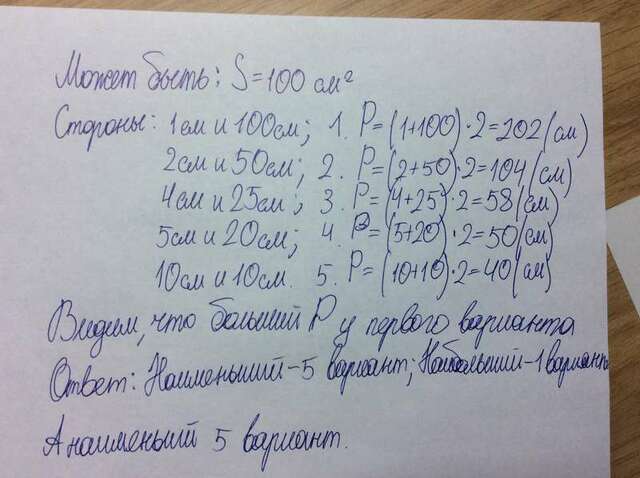 Может быть: S=100 см²
Стороны: 1см и 100см; 1. P=(1+100)·2=202(см)
2см и 50см; 2. P=(2+50)·2=104(см)
4см и 25см; 3. P=(4+25)·2=58(см)
5см и 20см; 4. P=(5+20)·2=50(см)
10см и 10см. 5. P=(10+10)·2=40(см)
Видим, что больший P у первого варианта
Ответ: Наименьший-5 вариант; Наибольший-1 вариант
А наименьший 5 вариант.